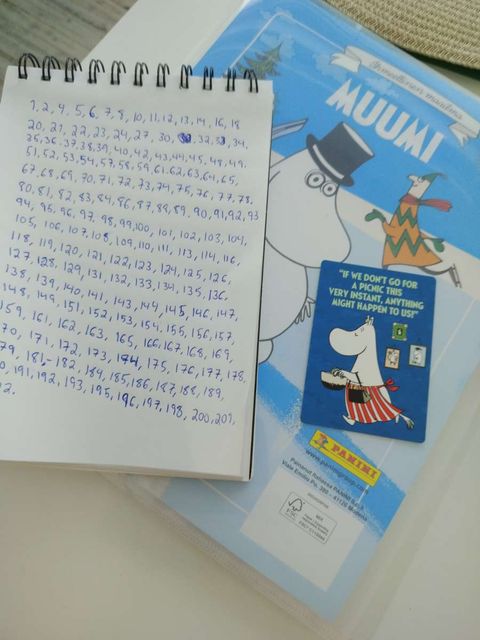 1, 2, 4, 5, 6, 7, 8, 10, 11, 12, 13, 14, 16, 18
20, 21, 22, 23, 24, 27, 30, 32, 33, 34,
35, 36, 37, 38, 39, 40, 42, 43, 44, 45, 48, 49,
51, 52, 53, 54, 57, 58, 59, 61, 62, 63, 64, 65,
67, 68, 69, 70, 71, 72, 73, 74, 75, 76, 77, 78,
80, 81, 82, 83, 84, 86, 87, 88, 89, 90, 91, 92, 93
94, 95, 96, 97, 98, 99, 100, 101, 102, 103, 104,
105, 106, 107, 108, 109, 110, 111, 113, 114, 116,
118, 119, 120, 121, 122, 123, 124, 125, 126,
127, 128, 129, 131, 132, 133, 134, 135, 136,
138, 139, 140, 141, 143, 144, 145, 146, 147,
148, 149, 151, 152, 153, 154, 155, 156, 157,
159, 161, 162, 163, 165, 166, 167, 168, 169,
70, 171, 172, 173, 174, 175, 176, 177, 178,
79, 181, 182, 184, 185, 186, 187, 188, 189,
0, 191, 192, 193, 195, 196, 197, 198, 200, 201,
2.
MUUMI
"IF WE DON'T GO FOR
A PICNIC THIS
VERY INSTANT, ANYTHING
MIGHT HAPPEN TO US!"
PANINI
www.paninigroup.com
Viale Emilio Po, 380 - 41126 Modena
FSC
MIX